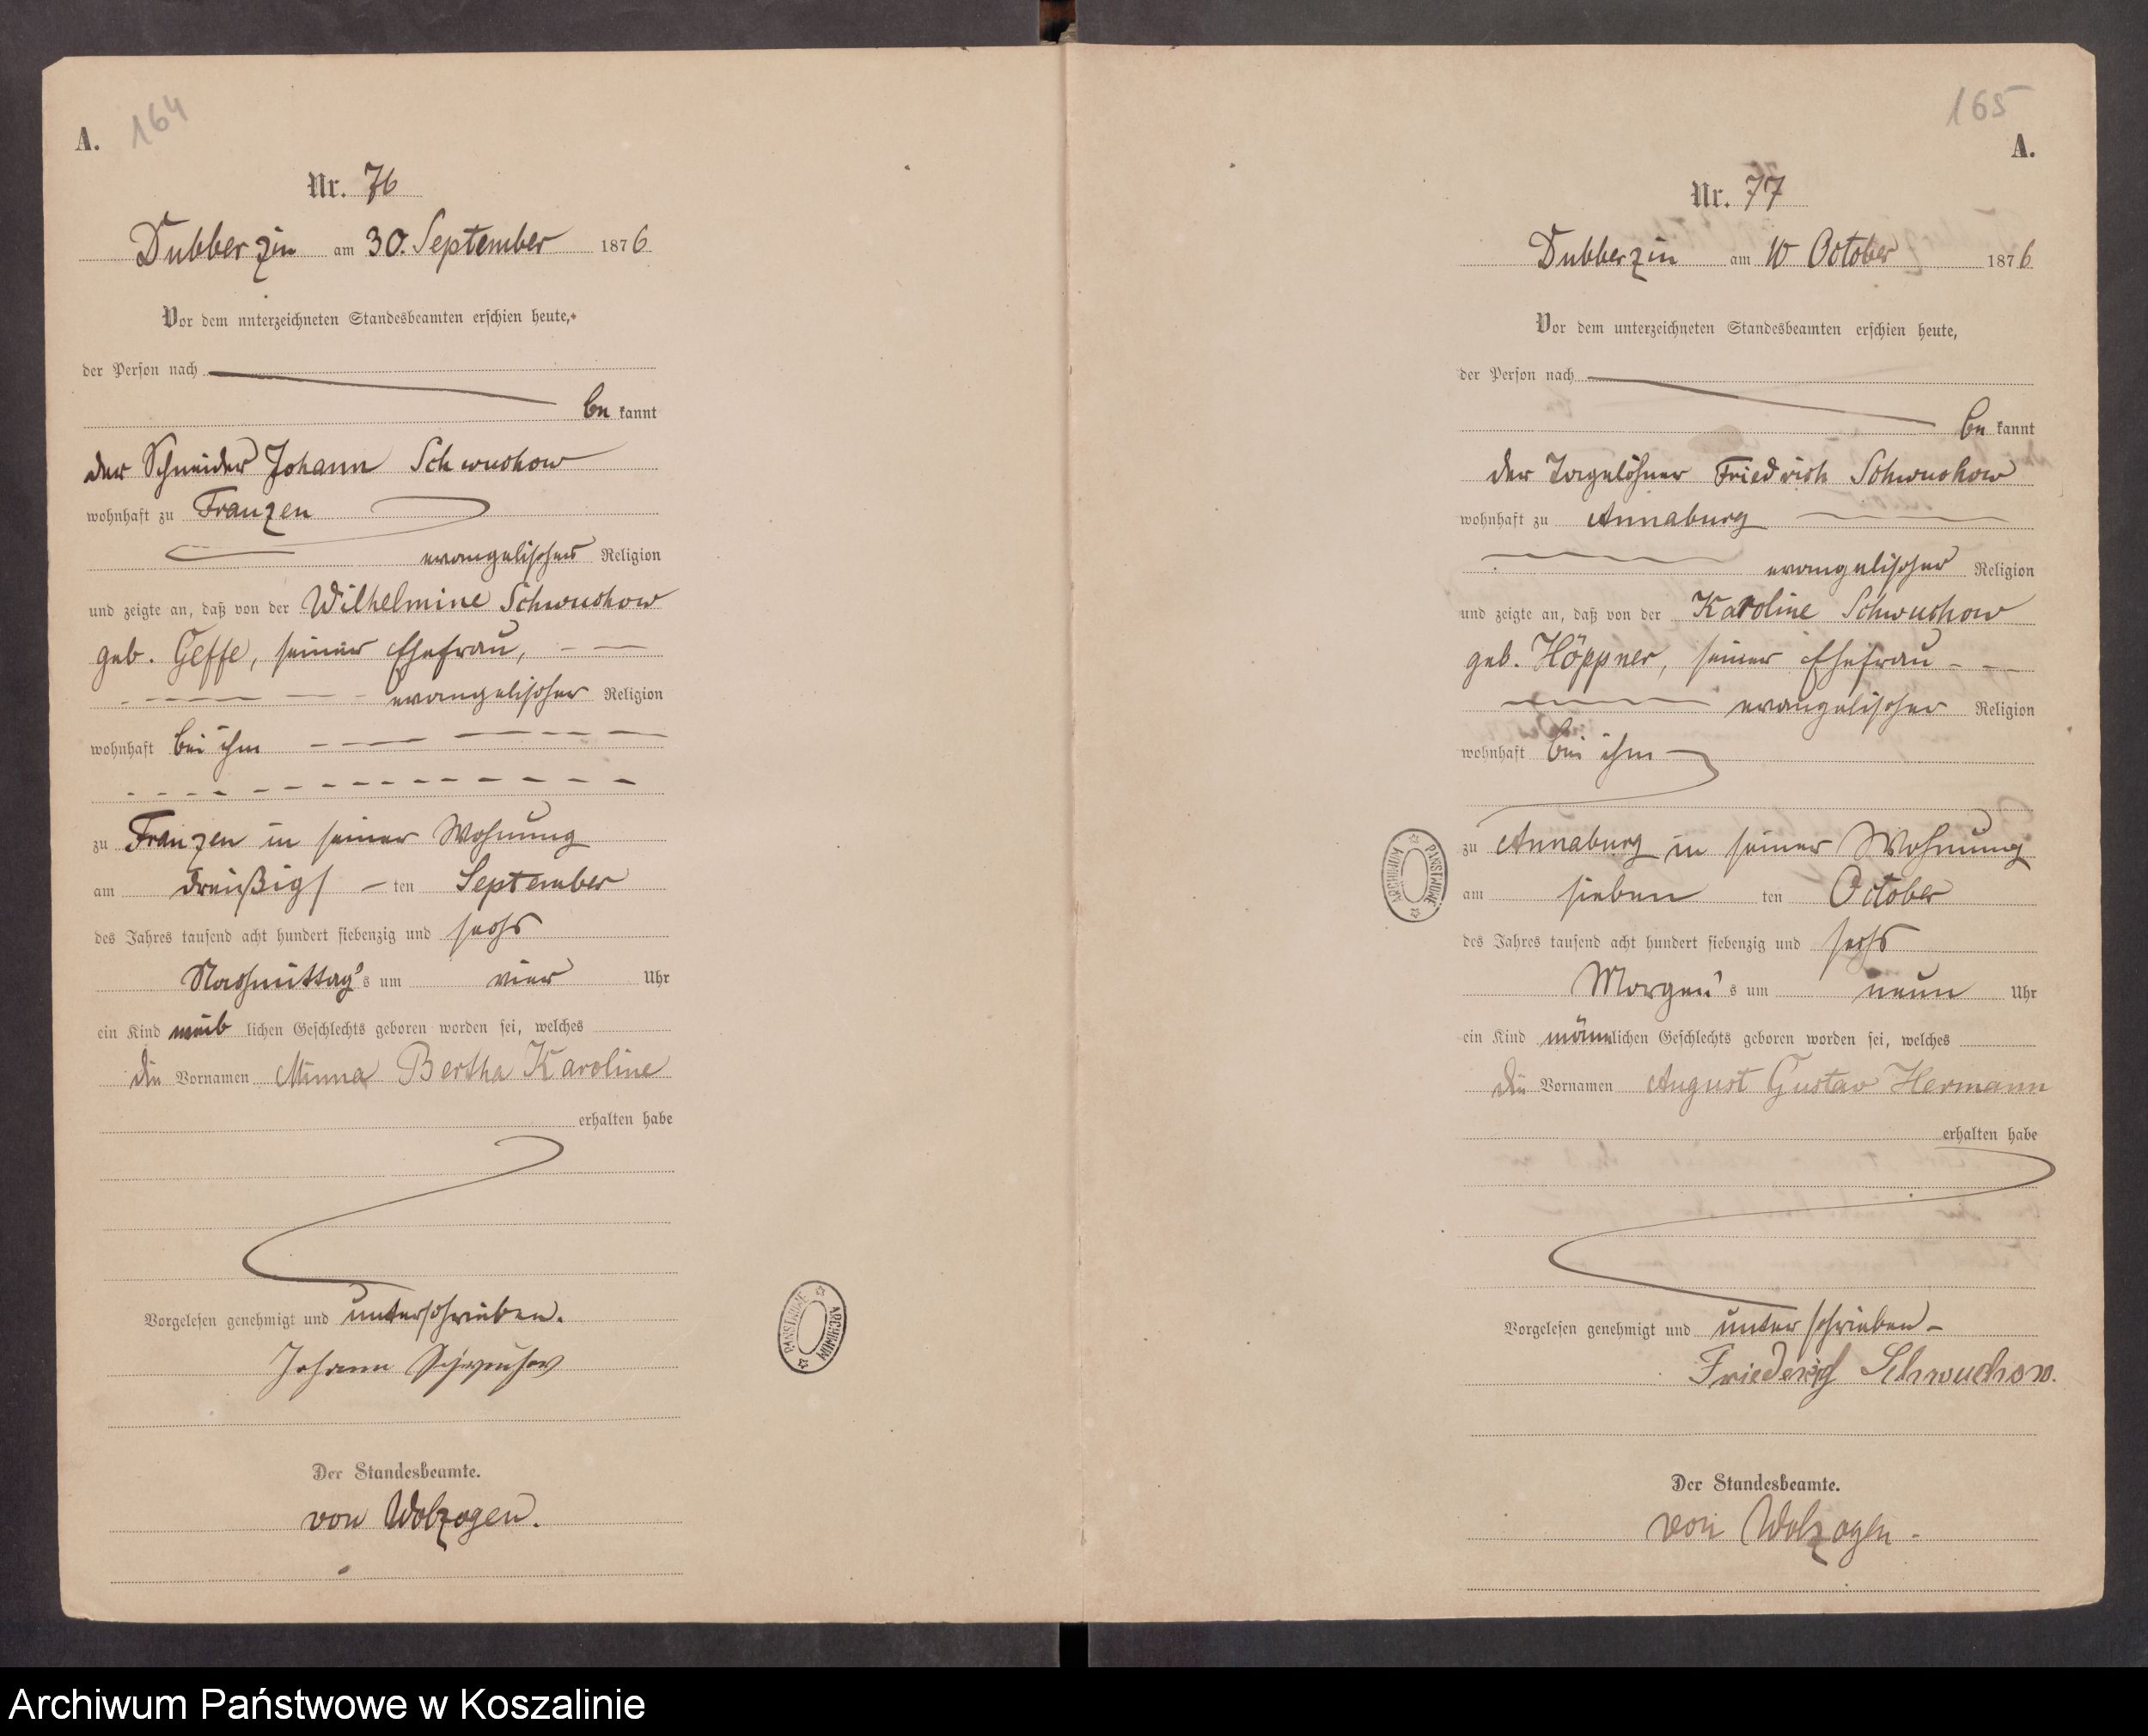 164
A.
Nr. 76
Dubberzin am 30. September 1876
Vor dem unterzeichneten Standesbeamten erschien heute,
der Person nach
be kannt
der Schneider Johann Schwuchow
wohnhaft zu Franzen
evangelischer Religion
und zeigte an, daß von der Wilhelmine Schwuchow
geb. Geffe, seiner Ehefrau,
evangelischer Religion
wohnhaft bei ihm
zu Franzen in seiner Wohnung
am dreißigs ten September
des Jahres tausend acht hundert siebenzig und sechs
Nachmittag's um vier Uhr
ein Kind weib lichen Geschlechts geboren worden sei, welches
die Vornamen Minna Bertha Karoline
erhalten habe
Vorgelesen genehmigt und unterschrieben.
Johann Schwuchow
Der Standesbeamte.
von Wolzogen.
ARCHIWUM PAŃSTWOWE
165
A.
Nr. 77
Dubberzin am 10 October 1876
Vor dem unterzeichneten Standesbeamten erschien heute,
der Person nach
be kannt
der Tagelöhner Friedrich Schwuchow
wohnhaft zu Annaburg
evangelischer Religion
und zeigte an, daß von der Karoline Schwuchow
geb. Höppner, seiner Ehefrau
evangelischer Religion
wohnhaft bei ihm
zu Annaburg in seiner Wohnung
am sieben ten October
des Jahres tausend acht hundert siebenzig und sechs
Morgen's um neun Uhr
ein Kind männlichen Geschlechts geboren worden sei, welches
die Vornamen August Gustav Hermann
erhalten habe
Vorgelesen genehmigt und unterschrieben
Friederich Schwuchow.
Der Standesbeamte.
von Wolzogen.
ARCHIWUM PAŃSTWOWE
Archiwum Państwowe w Koszalinie